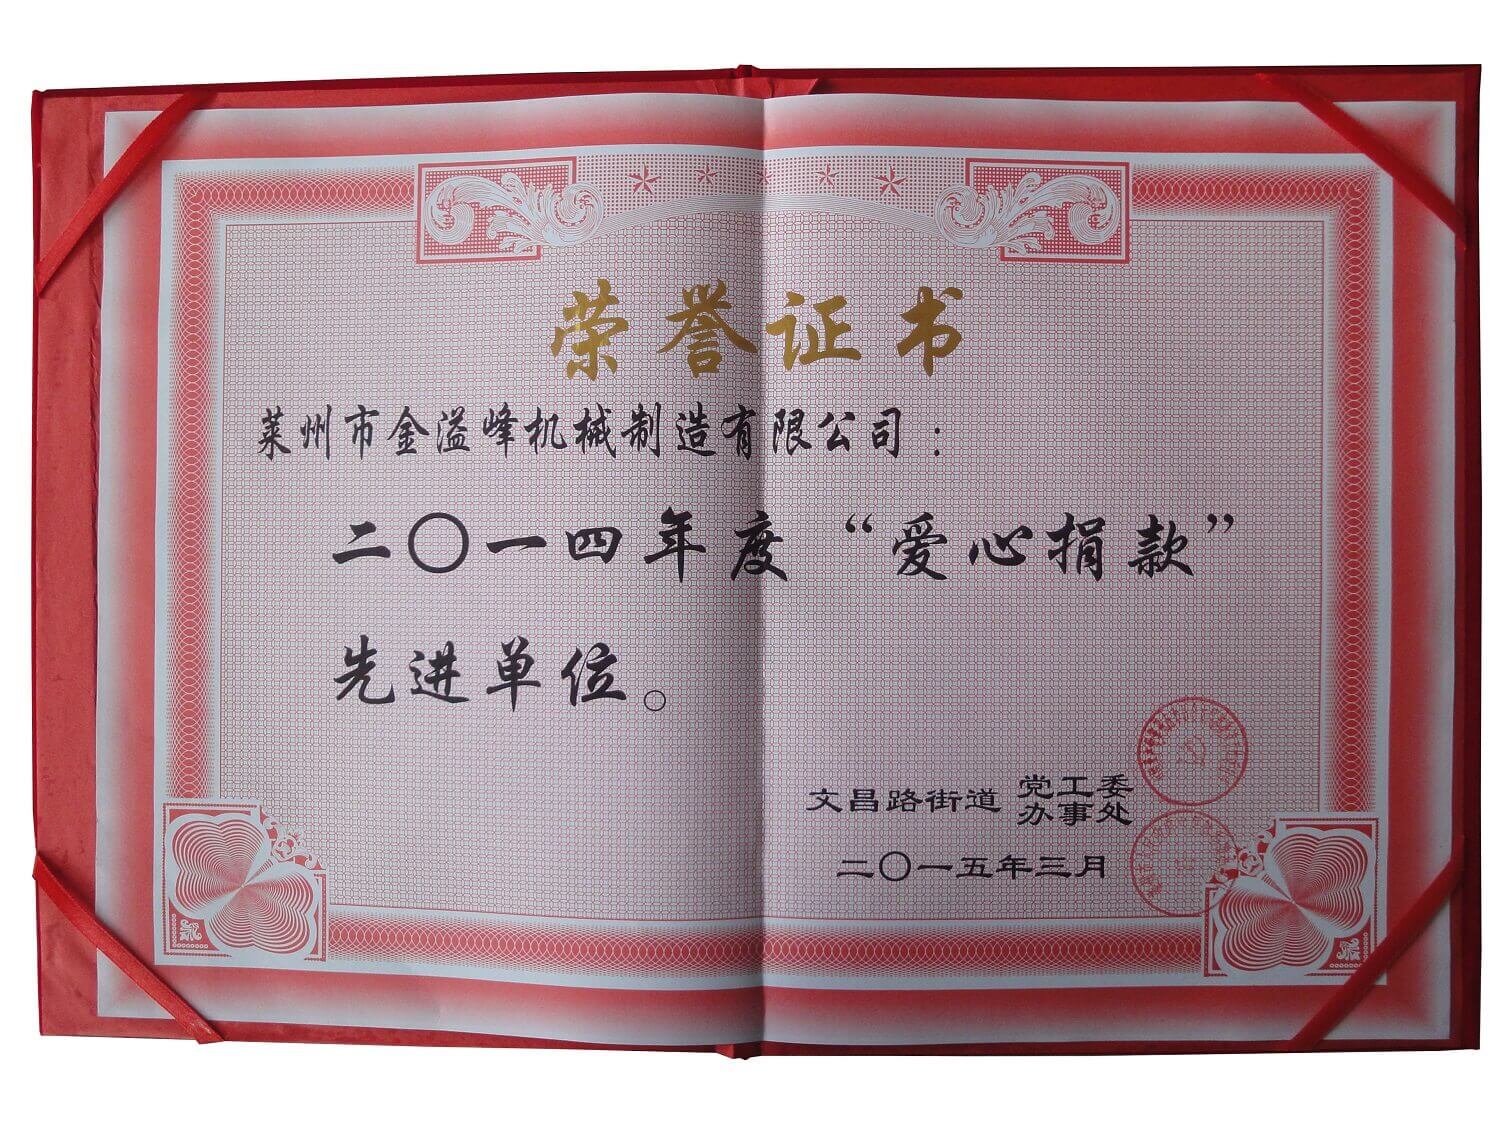 荣誉证书
莱州市金溢峰机械制造有限公司：
二〇一四年度“爱心捐款”
先进单位。
文昌路街道 党工委
办事处
二〇一五年三月